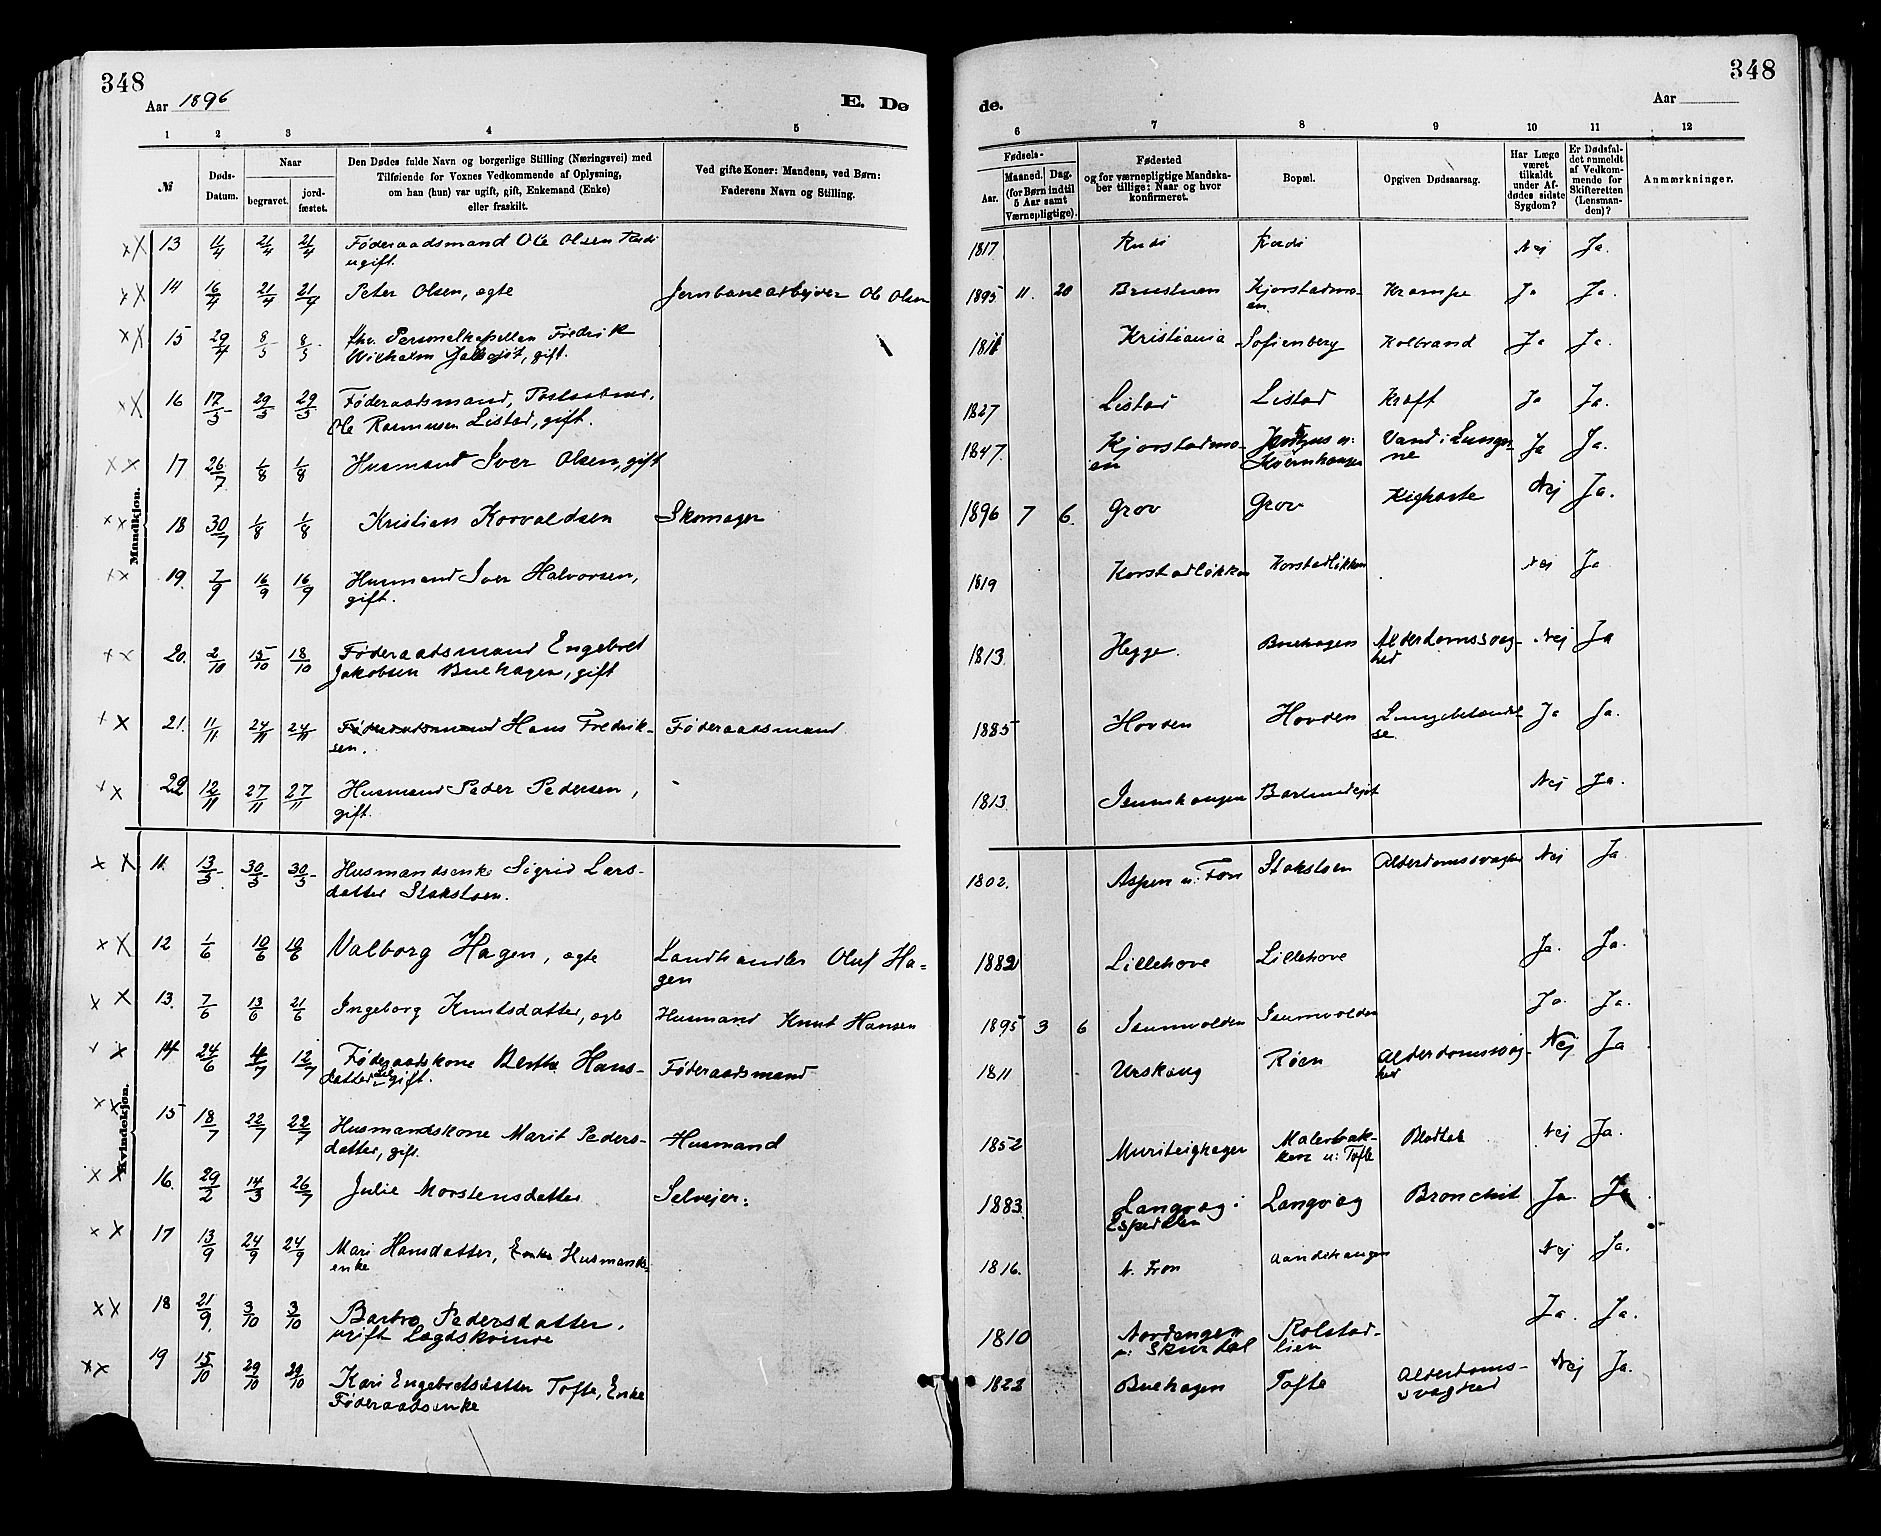 348
348
Aar 1896
E. Dø
de.
Aar
1 2 3 4 5 6 7 8 9 10 11 12
№
Døds-Datum.
Naar
begravet.
jord-fæstet.
Den Dødes fulde Navn og borgerlige Stilling (Næringsvei) med
Tilføiende for Voxnes Vedkommende af Oplysning,
om han (hun) var ugift, gift, Enkemand (Enke)
eller fraskilt.
Ved gifte Koner: Mandens, ved Børn:
Faderens Navn og Stilling.
Fødsels-
Aar.
Maaned. Dag.
(for Børn indtil
5 Aar samt
Værnepligtige).
Fødested
og for værnepligtige Mandska-
ber tillige: Naar og hvor
konfirmeret.
Bopæl.
Opgiven Dødsaarsag.
Har Læge
været
tilkaldt
under Af-
dødes sidste
Sygdom?
Er Dødsfal-
det anmeldt
af Vedkom-
mende for
Skifteretten
(Lensman-
den)?
Anmærkninger.
Mandkjøn.
13 11/4 21/4 21/4 Føderaadsmand Ole Olsen Rudi 1817 Rudi Rudi Nej Ja.
ugift.
14 16/4 21/4 21/4 Peter Olsen, ægte Jernbanearbejder Ole Olsen 1895 11. 20 Brustuen Kjorstadmo- Krampe Ja Ja.
en.
15 29/4 8/5 8/5 fhv. Personelkapellan Fredrik 1811 Kristiania Sofienberg Kolbrand Ja Ja.
Wilhelm, gift.
16 17/5 29/5 29/5 Føderaadsmand, 1827 Listad Listad Kræft Ja Ja.
Ole Rasmussen Listad, gift.
17 26/7 1/8 1/8 Husmand Iver Olsen, gift 1847. Kjorstadmo- Vand i Lunge- Ja Ja.
en Kvernhaugen ne
18 30/7 1/8 1/8 Kristian Korvaldsen Skomager 1896 7 6. Grov Grov Kighoste Nej Ja.
19. 7/9 16/9 16/9 Husmand Iver Halvorsen, 1819 Korstadløkken Korstadløkken Nej Ja
gift.
20. 2/10 15/10 18/10 Føderaadsmand Engebret 1813. Hegge. Buehagen Alderdomssvag- Nej Ja
Jakobsen Buehagen, gift hed
21. 11/11 24/11 24/11 Føderaadsmand Hans Fredrik- Føderaadsmand 1885 Hovden Hovden Lungebetændel- Ja Ja.
sen. se
22 12/11 27/11 27/11 Husmand Peder Pedersen, 1813. Isumshaugen Nej Ja.
gift.
Kvindekjøn.
11. 13/5 30/5 30/5 Husmandsenke Sigrid Lars- 1802. Aspen n: Fron Stakstoen Nej Ja.
datter Stakstoen.
12 1/6 10/6 10/6 Valborg Hagen, ægte Landhandler Oluf Ha- 1882 Lillehove Lillehove Ja. Ja.
gen
13. 7/6 13/6 21/6 Ingeborg Knutsdatter, ægte Husmand Knut Hansen 1895 3 6 Isumvolden Isumvolden Ja. Ja.
14 24/6 4/7 12/7 Føderaadskone Berthe Hans- Føderaadsmand 1811 Urskoug Røen Alderdomssvag- Nej Ja
datter gift. hed
15 18/7 22/7 22/7 Husmandskone Marit Peders- Husmand 1852 Muriteighagen Malerbak- Blodtab Nej Ja.
datter, gift. ken u: Tofte
16. 29/2 14/3 26/7 Julie Morstensdatter Selvejer. 1883. Langvag i Langvag Bronchit Ja. Ja
Espedalen
17 13/9 24/9 24/9 Mari Hansdatter, Enke Husmands- 1816. N. Fron Nej Ja.
enke
18 21/9. 3/10 3/10 Barbro Pedersdatter, 1810 Nordengen Rolstad- Ja. Ja.
ugift Lægdskvinde lien
19 15/10 29/10 29/10 Kari Engebretsdatter Tofte, Enke 1823 Buehagen Tofte Alderdoms- Nej Ja.
Føderaadsenke svaghed